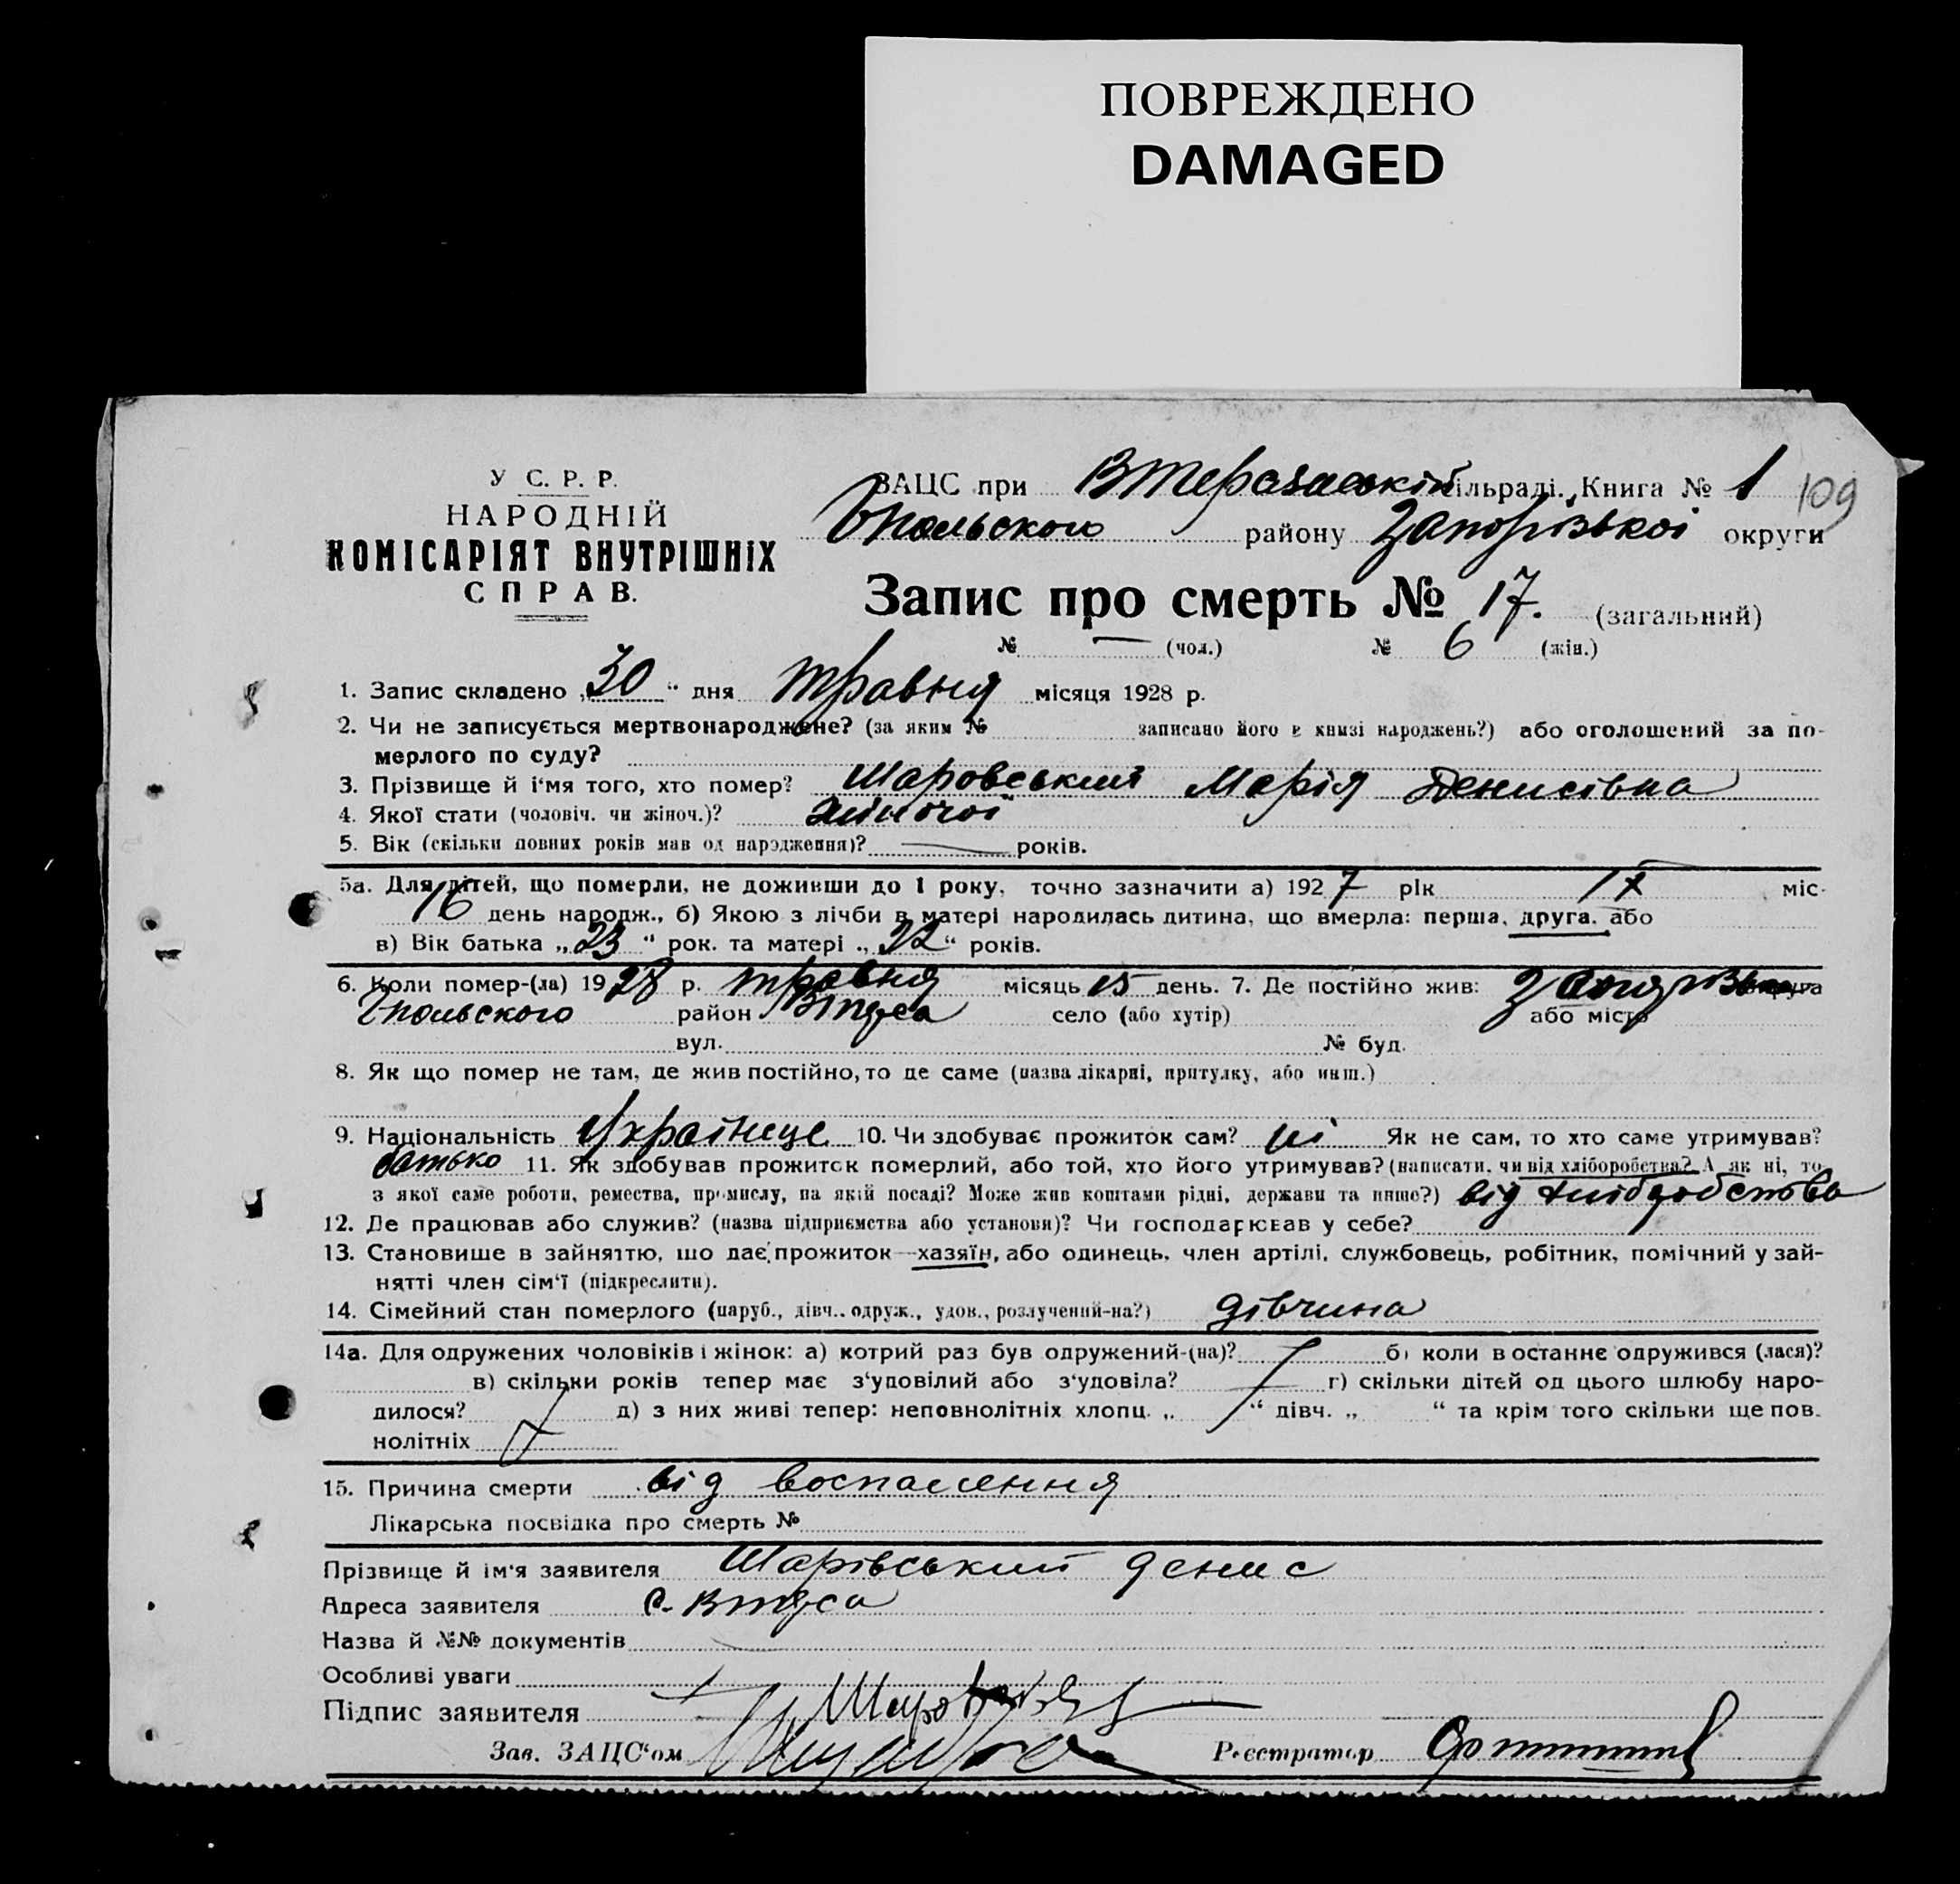 ПОВРЕЖДЕНО
DAMAGED
У С. Р. Р.
НАРОДНІЙ
КОМІСАРІЯТ ВНУТРІШНІХ
СПРАВ.
ЗАЦС при сільраді. Книга № 1 109
району Запорізької округи
Запис про смерть № 17. (загальний)
№ — (чол.) № 6 (жін.)
1. Запис складено „30“ дня травня місяця 1928 р.
2. Чи не записується мертвонароджене? (за яким № записано його в книзі народжень?) або оголошений за по-
мерлого по суду?
3. Прізвище й і‘мя того, хто помер? Шаровський Марія Денисівна
4. Якої стати (чоловіч. чи жіноч.)? жіночої
5. Вік (скільки повних років мав од народження)? — років.
5а. Для дітей, що померли, не доживши до 1 року, точно зазначити а) 1927 рік IX міс.
16 день народж., б) Якою з лічби в матері народилась дитина, що вмерла: перша, друга, або
в) Вік батька „23“ рок. та матері „22“ років.
6. Коли помер-(ла) 1928 р. травня місяць 15 день. 7. Де постійно жив: округа
район село (або хутір) або місто
вул. № буд.
8. Як що помер не там, де жив постійно, то де саме (назва лікарні, притулку, або инш.)
9. Національність 10. Чи здобуває прожиток сам? ні Як не сам, то хто саме утримував?
батько 11. Як здобував прожиток померлий, або той, хто його утримував? (написати, чи від хліборобства? А як ні, то
з якої саме роботи, ремества, промислу, на якій посаді? Може жив коштами рідні, держави та инше?) від хліборобства
12. Де працював або служив? (назва підприємства або установи)? Чи господарював у себе?
13. Становище в зайняттю, що дає прожиток—хазяїн, або одинець, член артілі, службовець, робітник, помічний у зай-
нятті член сім‘ї (підкреслити).
14. Сімейний стан померлого (паруб., дівч., одруж., удов., розлучений-на?) дівчина
14а. Для одружених чоловіків і жінок: а) котрий раз був одружений-(на)? б) коли в останнє одружився (лася)?
в) скільки років тепер має з‘удовілий або з‘удовіла? г) скільки дітей од цього шлюбу наро-
дилося? д) з них живі тепер: неповнолітніх хлопц. „ “ дівч. „ “ та крім того скільки ще пов.
нолітніх
15. Причина смерти від воспалення
Лікарська посвідка про смерть №
Прізвище й ім‘я заявителя Шарівський Денис
Адреса заявителя с.
Назва й №№ документів
Особливі уваги
Підпис заявителя
Зав. ЗАЦС‘ом Реєстратор